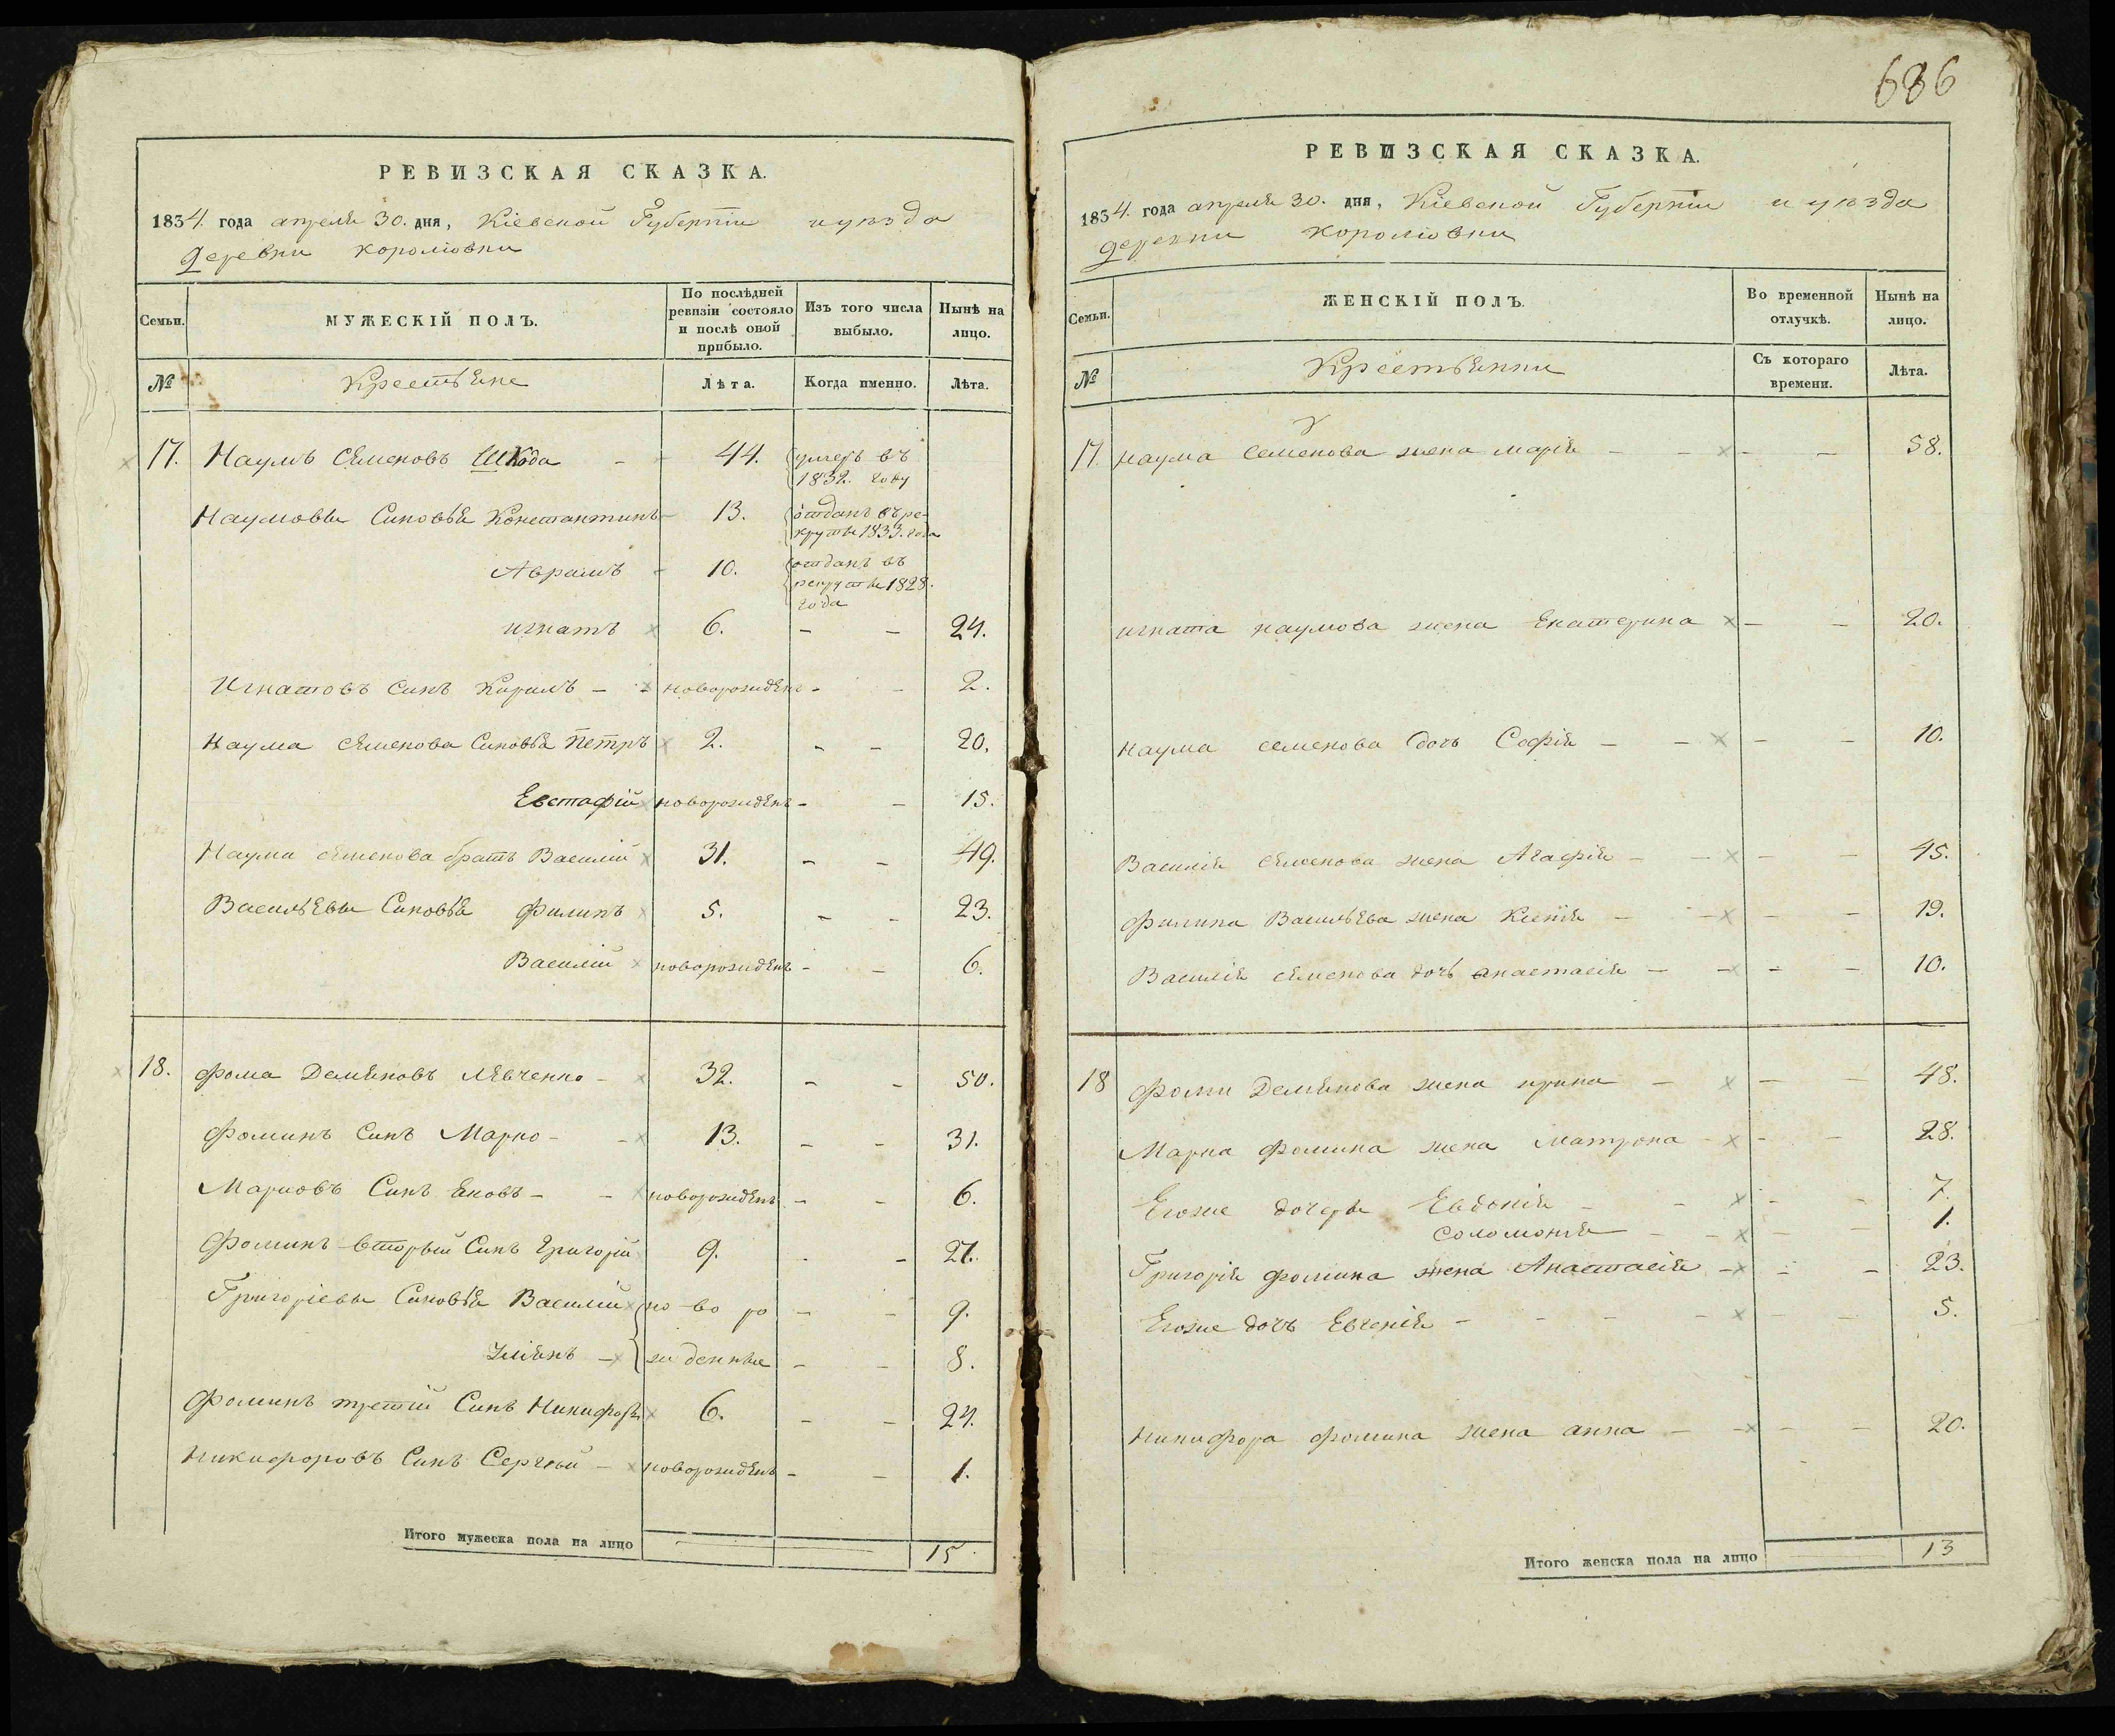 РЕВИЗСКАЯ СКАЗКА.
1834. года апреля 30. дня, Кіевской Губерніи и уѣзда
деревни королювки
Семьи.
МУЖЕСКІЙ ПОЛЪ.
По послѣдней
ревизіи состояло
и послѣ оной
прибыло.
Изъ того числа
выбыло.
Нынѣ на
лицо.
№
Крестьяне
Лѣта.
Когда именно.
Лѣта.
17. Наумъ Семеновъ Шкода - - 44. умеръ въ
1832. году
Наумовы Синовья Константинъ - 13. отданъ въ ре-
круты 1833. года
Аврамъ - 10. отданъ въ
рекруты 1828.
года
игнатъ 6. - - 24.
Игнатовъ Синъ Кирилъ - - новорожденъ - - 2.
Наума семенова Синовья Петръ 2. - - 20.
Евстафій новорожденъ - - 15.
Наума семенова братъ Василій 31. - - 49.
Васильевы Синовья Филипъ 5. - - 23.
Василій новорожденъ - - 6.
18. Фома Демяновъ Левченко - 32. - - 50.
Фоминъ Синъ Марко - - 13. - - 31.
Марковъ Синъ Яковъ - - новорожденъ - - 6.
Фоминъ вторый Синъ Григорій 9. - - 27.
Григоріевы Синовья Василій но-во ро - - 9.
Уліянъ - жденные - - 8.
Фоминъ третій Синъ Никифоръ 6. - - 24.
Никифоровъ Синъ Сергѣй - новорожденъ - - 1.
Итого мужеска пола на лицо 15
686
РЕВИЗСКАЯ СКАЗКА.
1834. года апреля 30. дня, Кіевской Губерніи и уѣзда
деревни королювки
Семьи.
ЖЕНСКІЙ ПОЛЪ.
Во временной
отлучкѣ.
Нынѣ на
лицо.
№
Крестьянки
Съ котораго
времени.
Лѣта.
17. Наума семенова жена марія - - - - 58.
игната наумова жена Екатерина - - 20.
Наума семенова дочь Софія - - - - 10.
Василія семенова жена Агафія - - - - 45.
Филипа Васильева жена Ксенія - - - - 19.
Василія семенова дочь анастасія - - - - 10.
18 Фоми Демянова жена ирина - - - 48.
Марка Фомина жена Матрона - - - 28.
Егоже дочеры Евдокія - - - - 7.
Соломонія - - - - 1.
Григорія фомина жена Анастасія - - - 23.
Егоже дочъ Евгенія - - - - - - 5.
Никифора фомина жена анна - - - - 20.
Итого женска пола на лицо 13